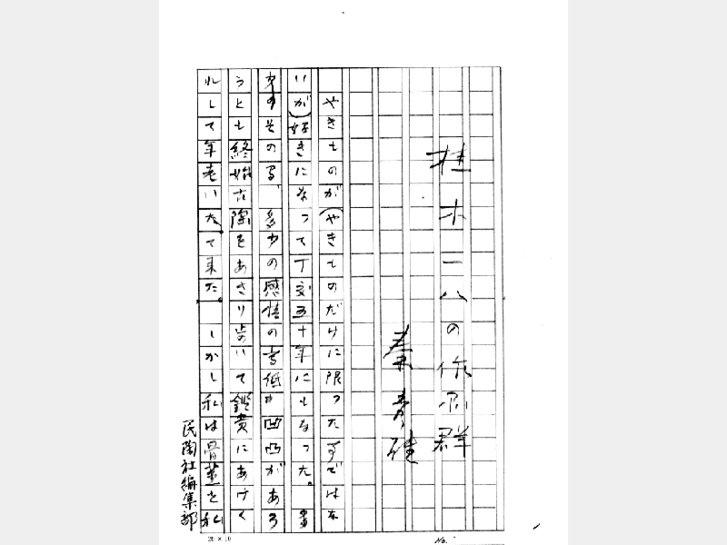 桂木一八の作品群
秦秀雄
やきものが(やきものだけに限った事ではな
いが)好きになって丁度五十年にもなった。
その間、多少の感情の高低や凹凸があろ
うとも終始古陶をあさり歩いて鑑賞にあけく
れして年老いたて来た。しかし私は骨董を私
民陶社編集部
20×10